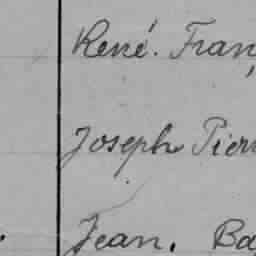 René. Fran
Joseph Pier
Jean. Ba